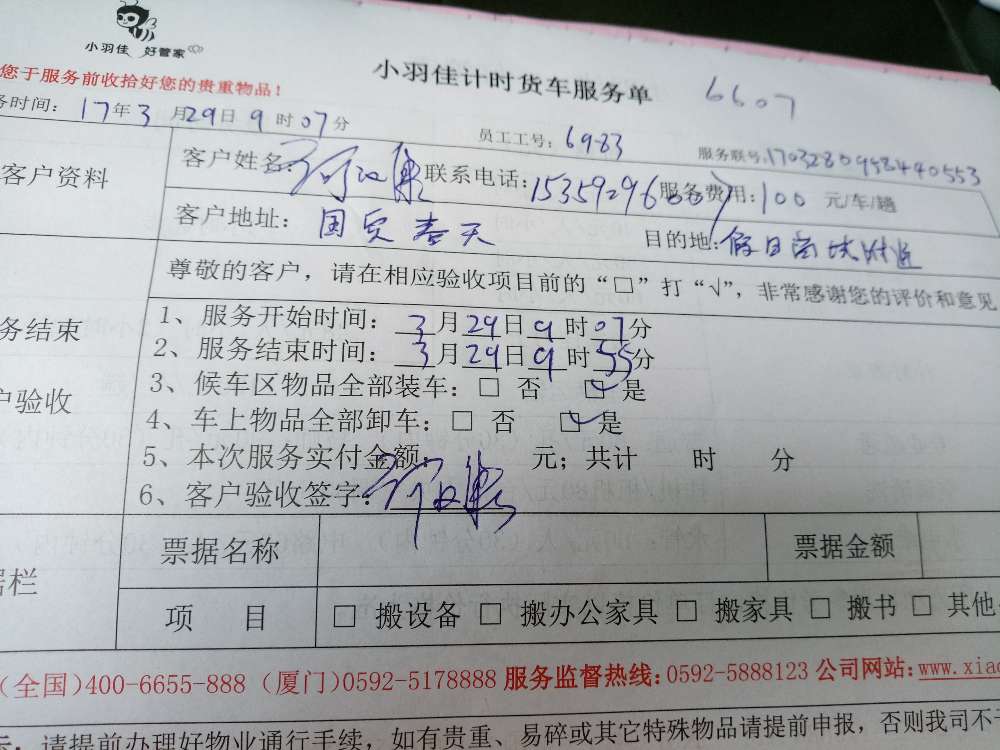 小羽佳 好管家
小羽佳计时货车服务单
6607
您于服务前收拾好您的贵重物品！
务时间：17年3月29日9时07分
员工工号：6983
服务联号：1703280958440553
客户资料
客户姓名：
联系电话：
服务费用：100 元/车/趟
客户地址：国贸春天
目的地：假日商城附近
尊敬的客户，请在相应验收项目前的“□”打“√”，非常感谢您的评价和意见
务结束
户验收
1、服务开始时间：3月29日9时07分
2、服务结束时间：3月29日9时55分
3、候车区物品全部装车：□ 否 □ 是
4、车上物品全部卸车：□ 否 □ 是
5、本次服务实付金额： 元；共计 时 分
6、客户验收签字：
据栏
票据名称
票据金额
项 目
□ 搬设备 □ 搬办公家具 □ 搬家具 □ 搬书 □ 其他
（全国）400-6655-888（厦门）0592-5178888 服务监督热线：0592-5888123 公司网站：www.xiao
示：请提前办理好物业通行手续，如有贵重、易碎或其它特殊物品请提前申报，否则我司不